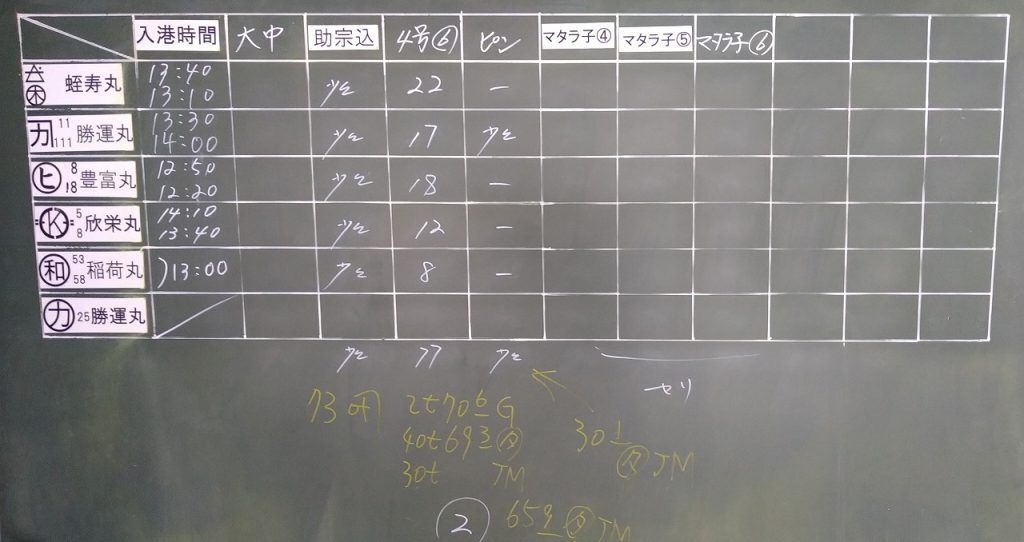 入港時間 大中 助宗込 4号⑥ ピン マタラ子④ マタラ子⑤ マタラ子⑥
蛭寿丸 13:40 13:10 少々 22 ー
カ 11 111 勝運丸 13:30 14:00 少々 17 少々
ヒ 8 18 豊富丸 12:50 12:20 少々 18 ー
K 5 8 欣栄丸 14:10 13:40 少々 12 ー
和 53 58 稲荷丸 )13:00 少々 8 ー
カ 25 勝運丸
少々 77 少々
セリ
2t70 G
40t69
30t JM
30 JM
② 65 JM